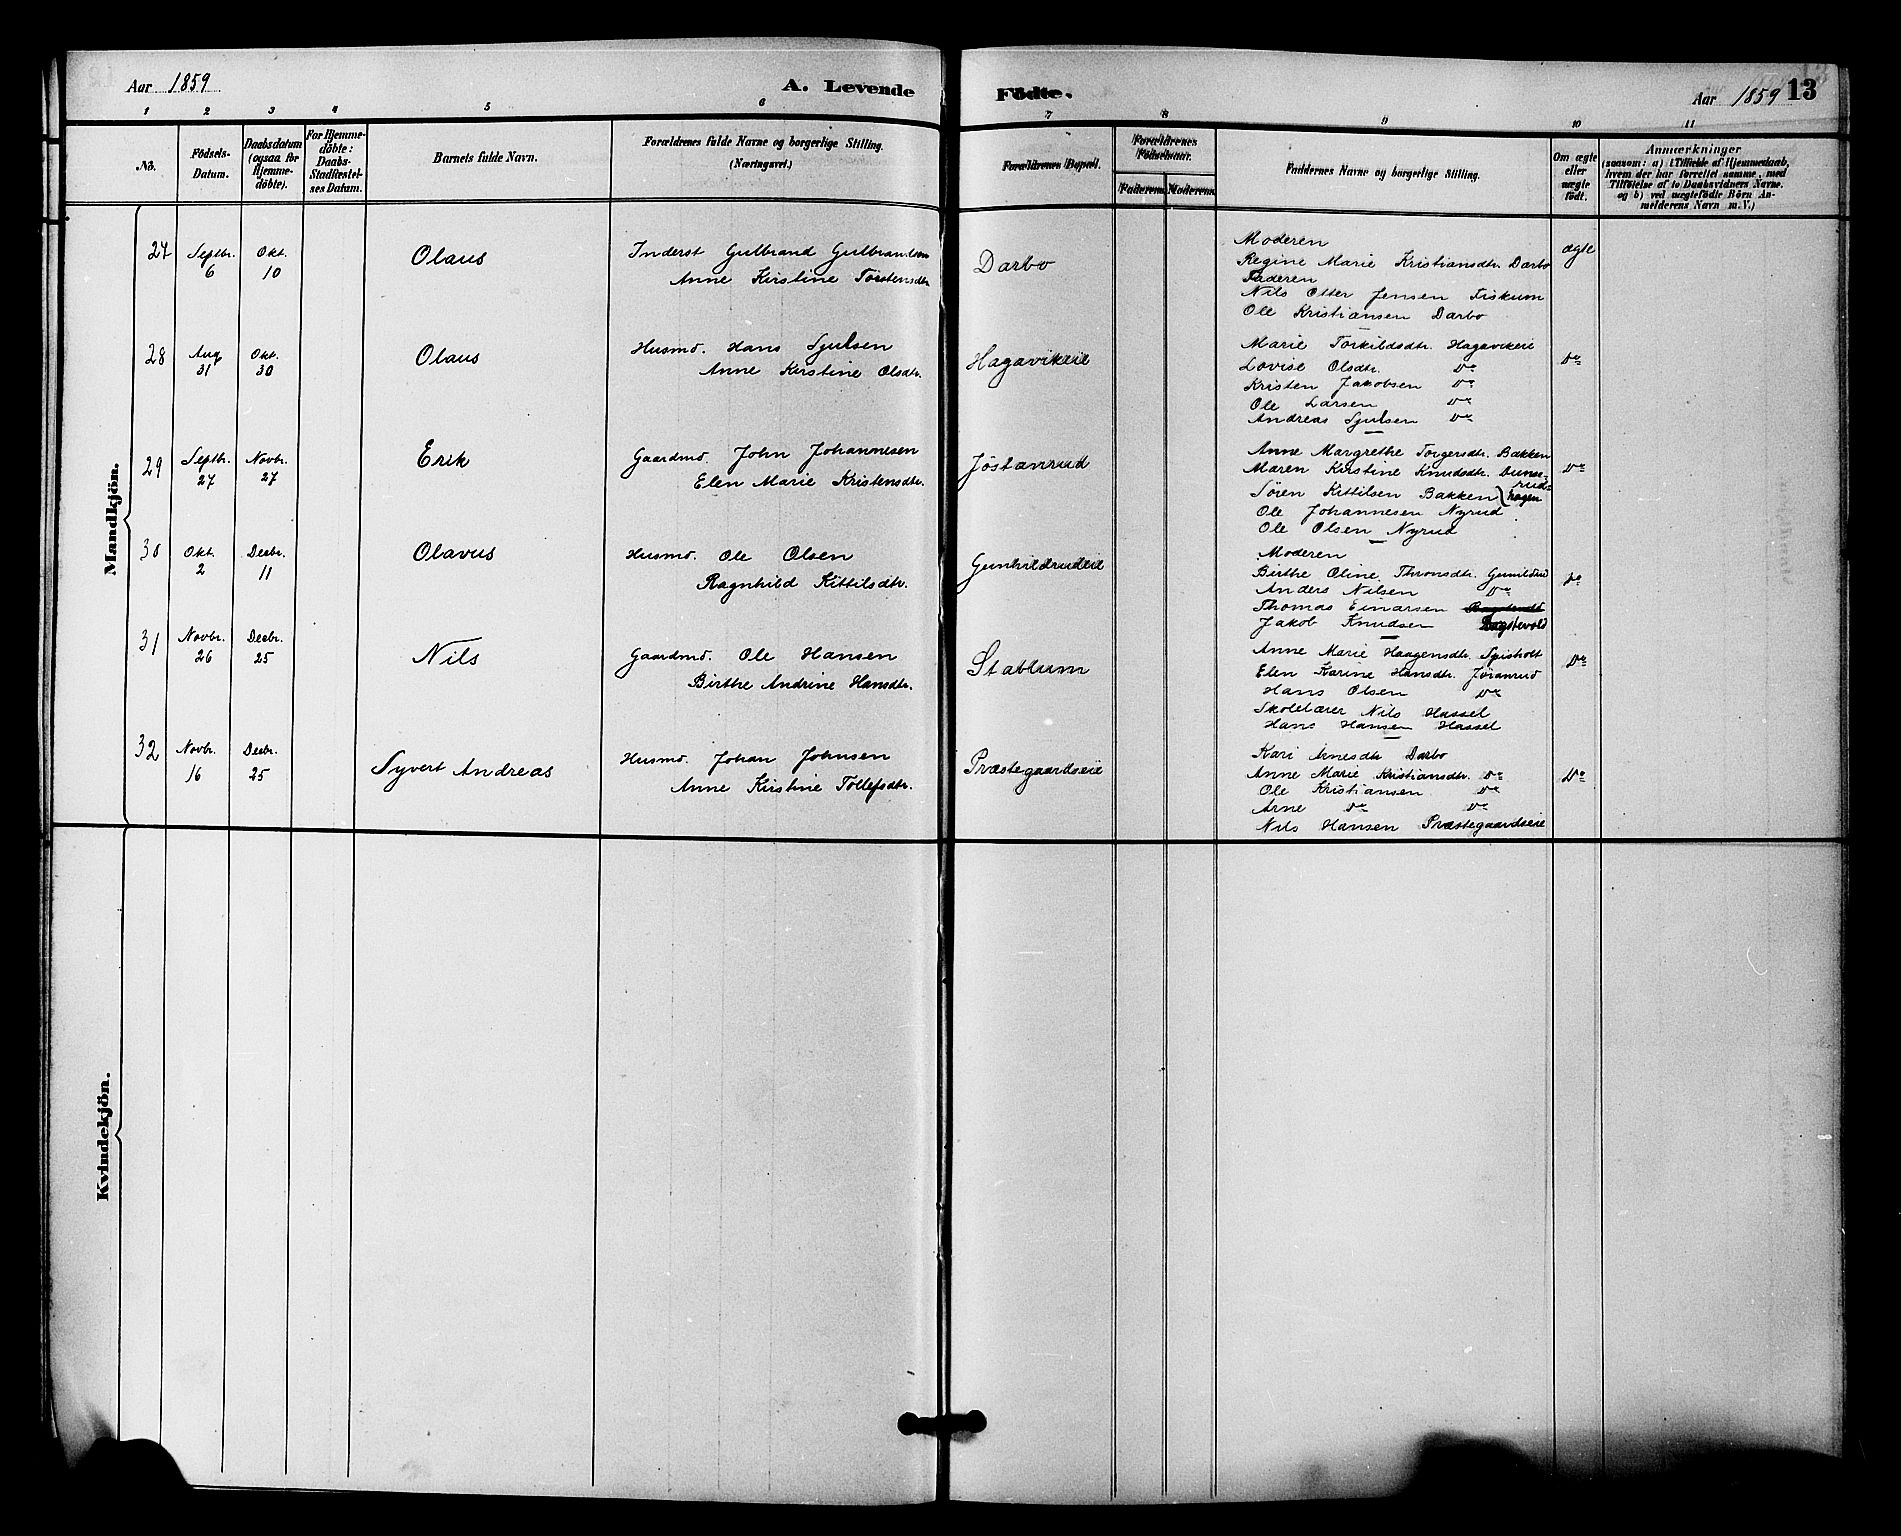 Aar 1859
A. Levende Födte.
Aar 1859 13
1 2 3 4 5 6 7 8 9 10 11
No.
Födsels-Datum.
Daabsdatum (ogsaa for Hjemme-döbte).
For Hjemme-döbte: Daabs-Stadfæstel-ses Datum.
Barnets fulde Navn.
Forældrenes fulde Navne og borgerlige Stilling.
(Næringsvei.)
Forældrenes Bopæl.
Forældrenes Födselsaar.
Faderens Moderens
Faddernes Navne og borgerlige Stilling.
Om ægte eller uægte födt.
Anmærkninger
(saasom: a) i Tilfælde af Hjemmedaab,
hvem der har forrettet samme, med
Tilföielse af to Daabsvidners Navne,
og b) ved uægtefödte Börn An-
melderens Navn m. V.)
Mandkjön.
27 Septbr. 6 Okt. 10 Olaus
Inderst Gulbrand Gulbrandsen
Anne Kirstine Torstensdtr.
Darbo
Moderen
Regine Marie Kristiansdtr. Darbo
Faderen
Nils Otter Jensen Fiskum
Ole Kristiansen Darbo
ægte
28 Aug. 31 Okt. 30 Olaus
Husmd. Hans Sjulsen
Anne Kirstine Olsdtr.
Hagavikeie
Marie Torkildsdtr. Hagavikeie
Lovise Olsdtr. Do
Kristen Jakobsen Do
Ole Larsen Do
Andreas Sjulsen Do
Do
29 Septbr. 27 Novbr. 27 Erik
Gaardmd. John Johannesen
Elen Marie Kristensdtr.
Jöstanrud
Anne Margrethe Torgersdtr. Bakken
Maren Kirstine Knudsdtr. Dunse-
rud-
Sören Kittilsen Bakken hagen
Ole Johannesen Nyrud
Ole Olsen Nyrud
Do
30 Okt. 2 Decbr. 11 Olavus
Husmd. Ole Olsen
Ragnhild Kittilsdtr.
Gunhildrudeie
Moderen
Birthe Oline Thronsdtr. Gunildrud
Anders Nilsen Do
Thomas Einarsen
Jakob Knudsen
Do
31 Novbr. 26 Decbr. 25 Nils
Gaardmd. Ole Hansen
Birthe Andrine Hansdtr.
Stablum
Anne Marie Haagensdtr.
Elen Karine Hansdtr. Jöranrud
Hans Olsen Do
Skolelærer Nils Hassel
Hans Hansen Hassel
Do
32 Novbr. 16 Decbr. 25 Syvert Andreas
Husmd. Johan Johnsen
Anne Kirstine Tollefsdtr.
Præstegaardseie
Kari Arnesdtr Darbo
Anne Marie Kristiansdtr. Do
Ole Kristiansen Do
Arne Do Do
Nils Hansen Præstegaardseie
Do
Kvindekjön.